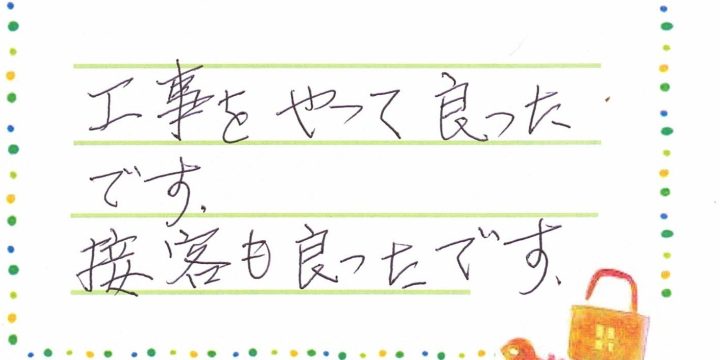 工事をやって良った
です.
接客も良ったです.